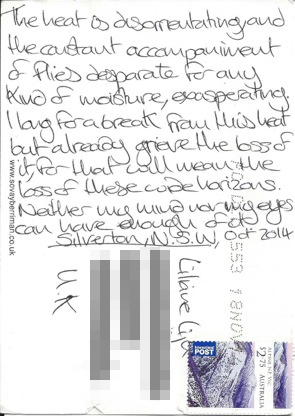 The heat is disorientating and
the constant accompaniment
of flies desparate for any
kind of moisture, exasperating.
I long for a break from this heat
but already grieve the loss of
it, for that will mean the
loss of these wide horizons.
Neither my mind nor my eyes
can have enough of it.
Silverton, N.S.W, Oct 2014
www.sovayberriman.co.uk
U.K
553 18NOV
POST
ALPINE NP, VIC
$2.75
AUSTRALIA